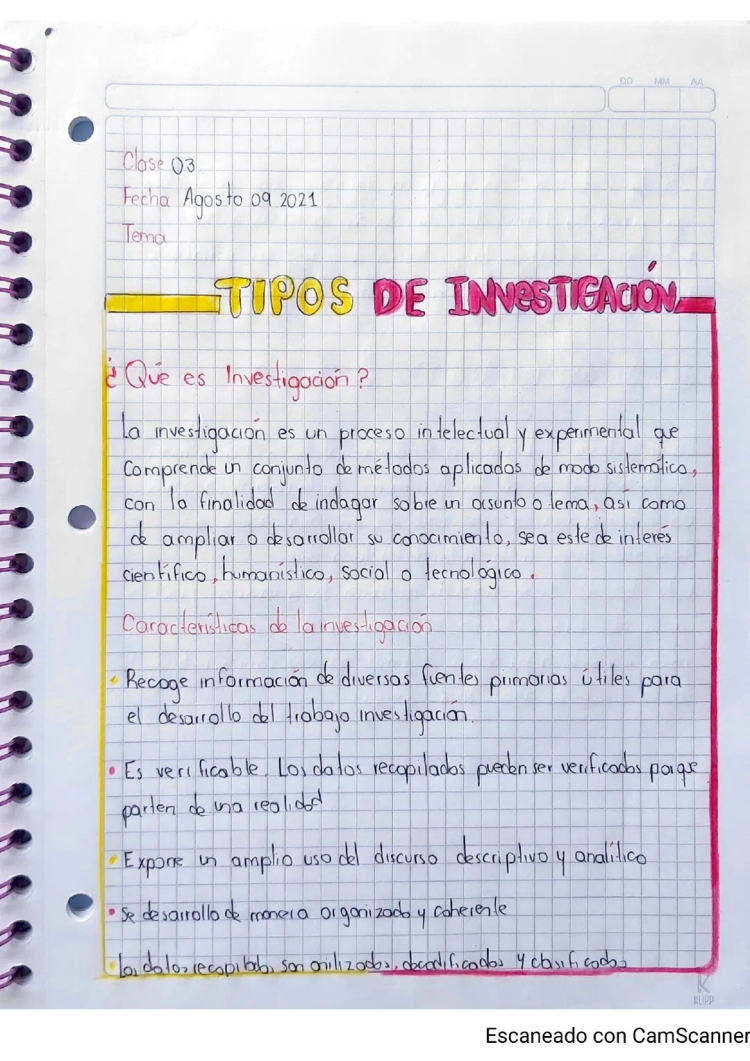 DD MM AA
Clase 03
Fecha Agosto 09 2021
Tema
TIPOS DE INVESTIGACIÓN
¿Qué es Investigación?
La investigación es un proceso intelectual y experimental que
comprende un conjunto de métodos aplicados de modo sistemático,
con la finalidad de indagar sobre un asunto o tema, así como
de ampliar o desarrollar su conocimiento, sea este de interés
científico, humanístico, social o tecnológico.
Características de la investigación
• Recoge información de diversas fuentes primarias útiles para
el desarrollo del trabajo investigación.
• Es verificable. Los datos recopilados pueden ser verificados porque
parten de una realidad
• Expone un amplio uso del discurso descriptivo y analítico
• Se desarrolla de manera organizada y coherente
• Los datos recopilados son analizados, decodificados y clasificados
K
KLIPP
Escaneado con CamScanner